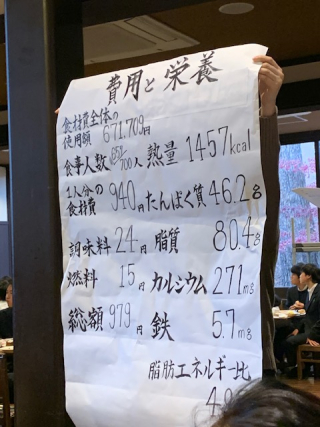 費用と栄養
食材費全体の
使用額 671,709円
食事人数 700人 熱量 1457kcal
1人分の
食材費 940円 たんぱく質 46.2g
調味料 24円 脂質 80.4g
燃料 15円 カルシウム 271mg
総額 979円 鉄 5.7mg
脂肪エネルギー比